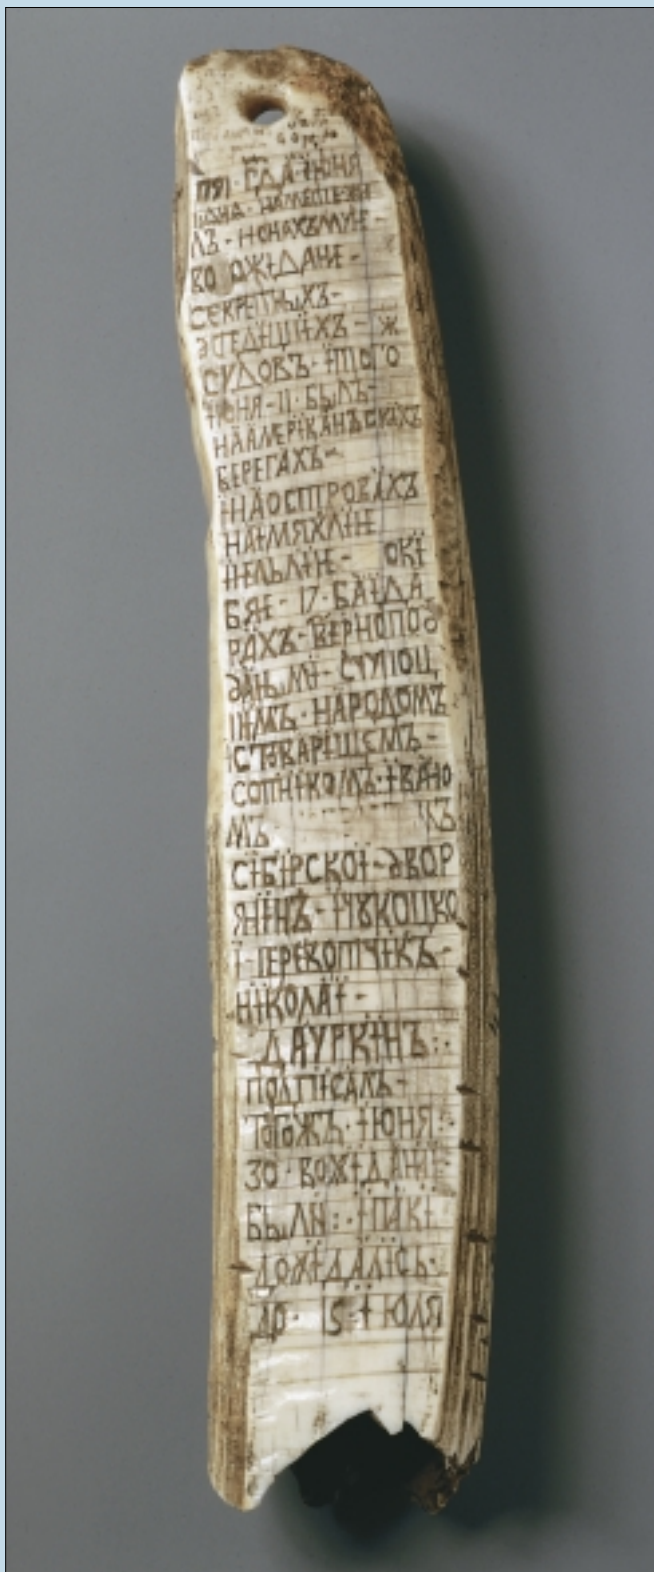 ГДА · ІЮНЯ
ЛЪ - ИСНАХЪМУІЕ -
ВО ОЖІДАНЕ -
СЕКРЕТНЫХЪ -
ЭПЕДИЦІІХЪ - Ж
СУДОВЪ · ІТОГО
ІЮНЯ - 11 · БЫЛЪ -
НААМЕРІКАНЪСКІХЪ
БЕРЕГАХЪ -
ІНАОСТРОВАХЪ
НАІМЯХЛІНЕ
ІІЕЛЬЛІНЕ - ОКІ
БЯЕ - 17 · БАІДА
РАХЪ - ВЕРНОПОД
ДАНЫМИ - СТУПОЦ
ІІМЪ · НАРОДОМЪ
ІСТОВАРІЩЕМЪ -
СОТНІКОМЪ · ІВАНО
МЪ КЪ
СІБІРСКОІ - ДВОР
ЯНІНЪ - ІЧУКОЦКО
І - ПЕРЕВОТЧІКЪ -
НІКОЛАІ -
ДАУРКІНЪ :
ПОДПІСАЛЪ -
ТОГОЖЪ · ІЮНЯ : -
30 · ВОЖІДАНІЕ
БЫЛИ : · ІПАКІ
ДОЖІДАЛІСЬ ·
ДО · 15 · ІЮЛЯ